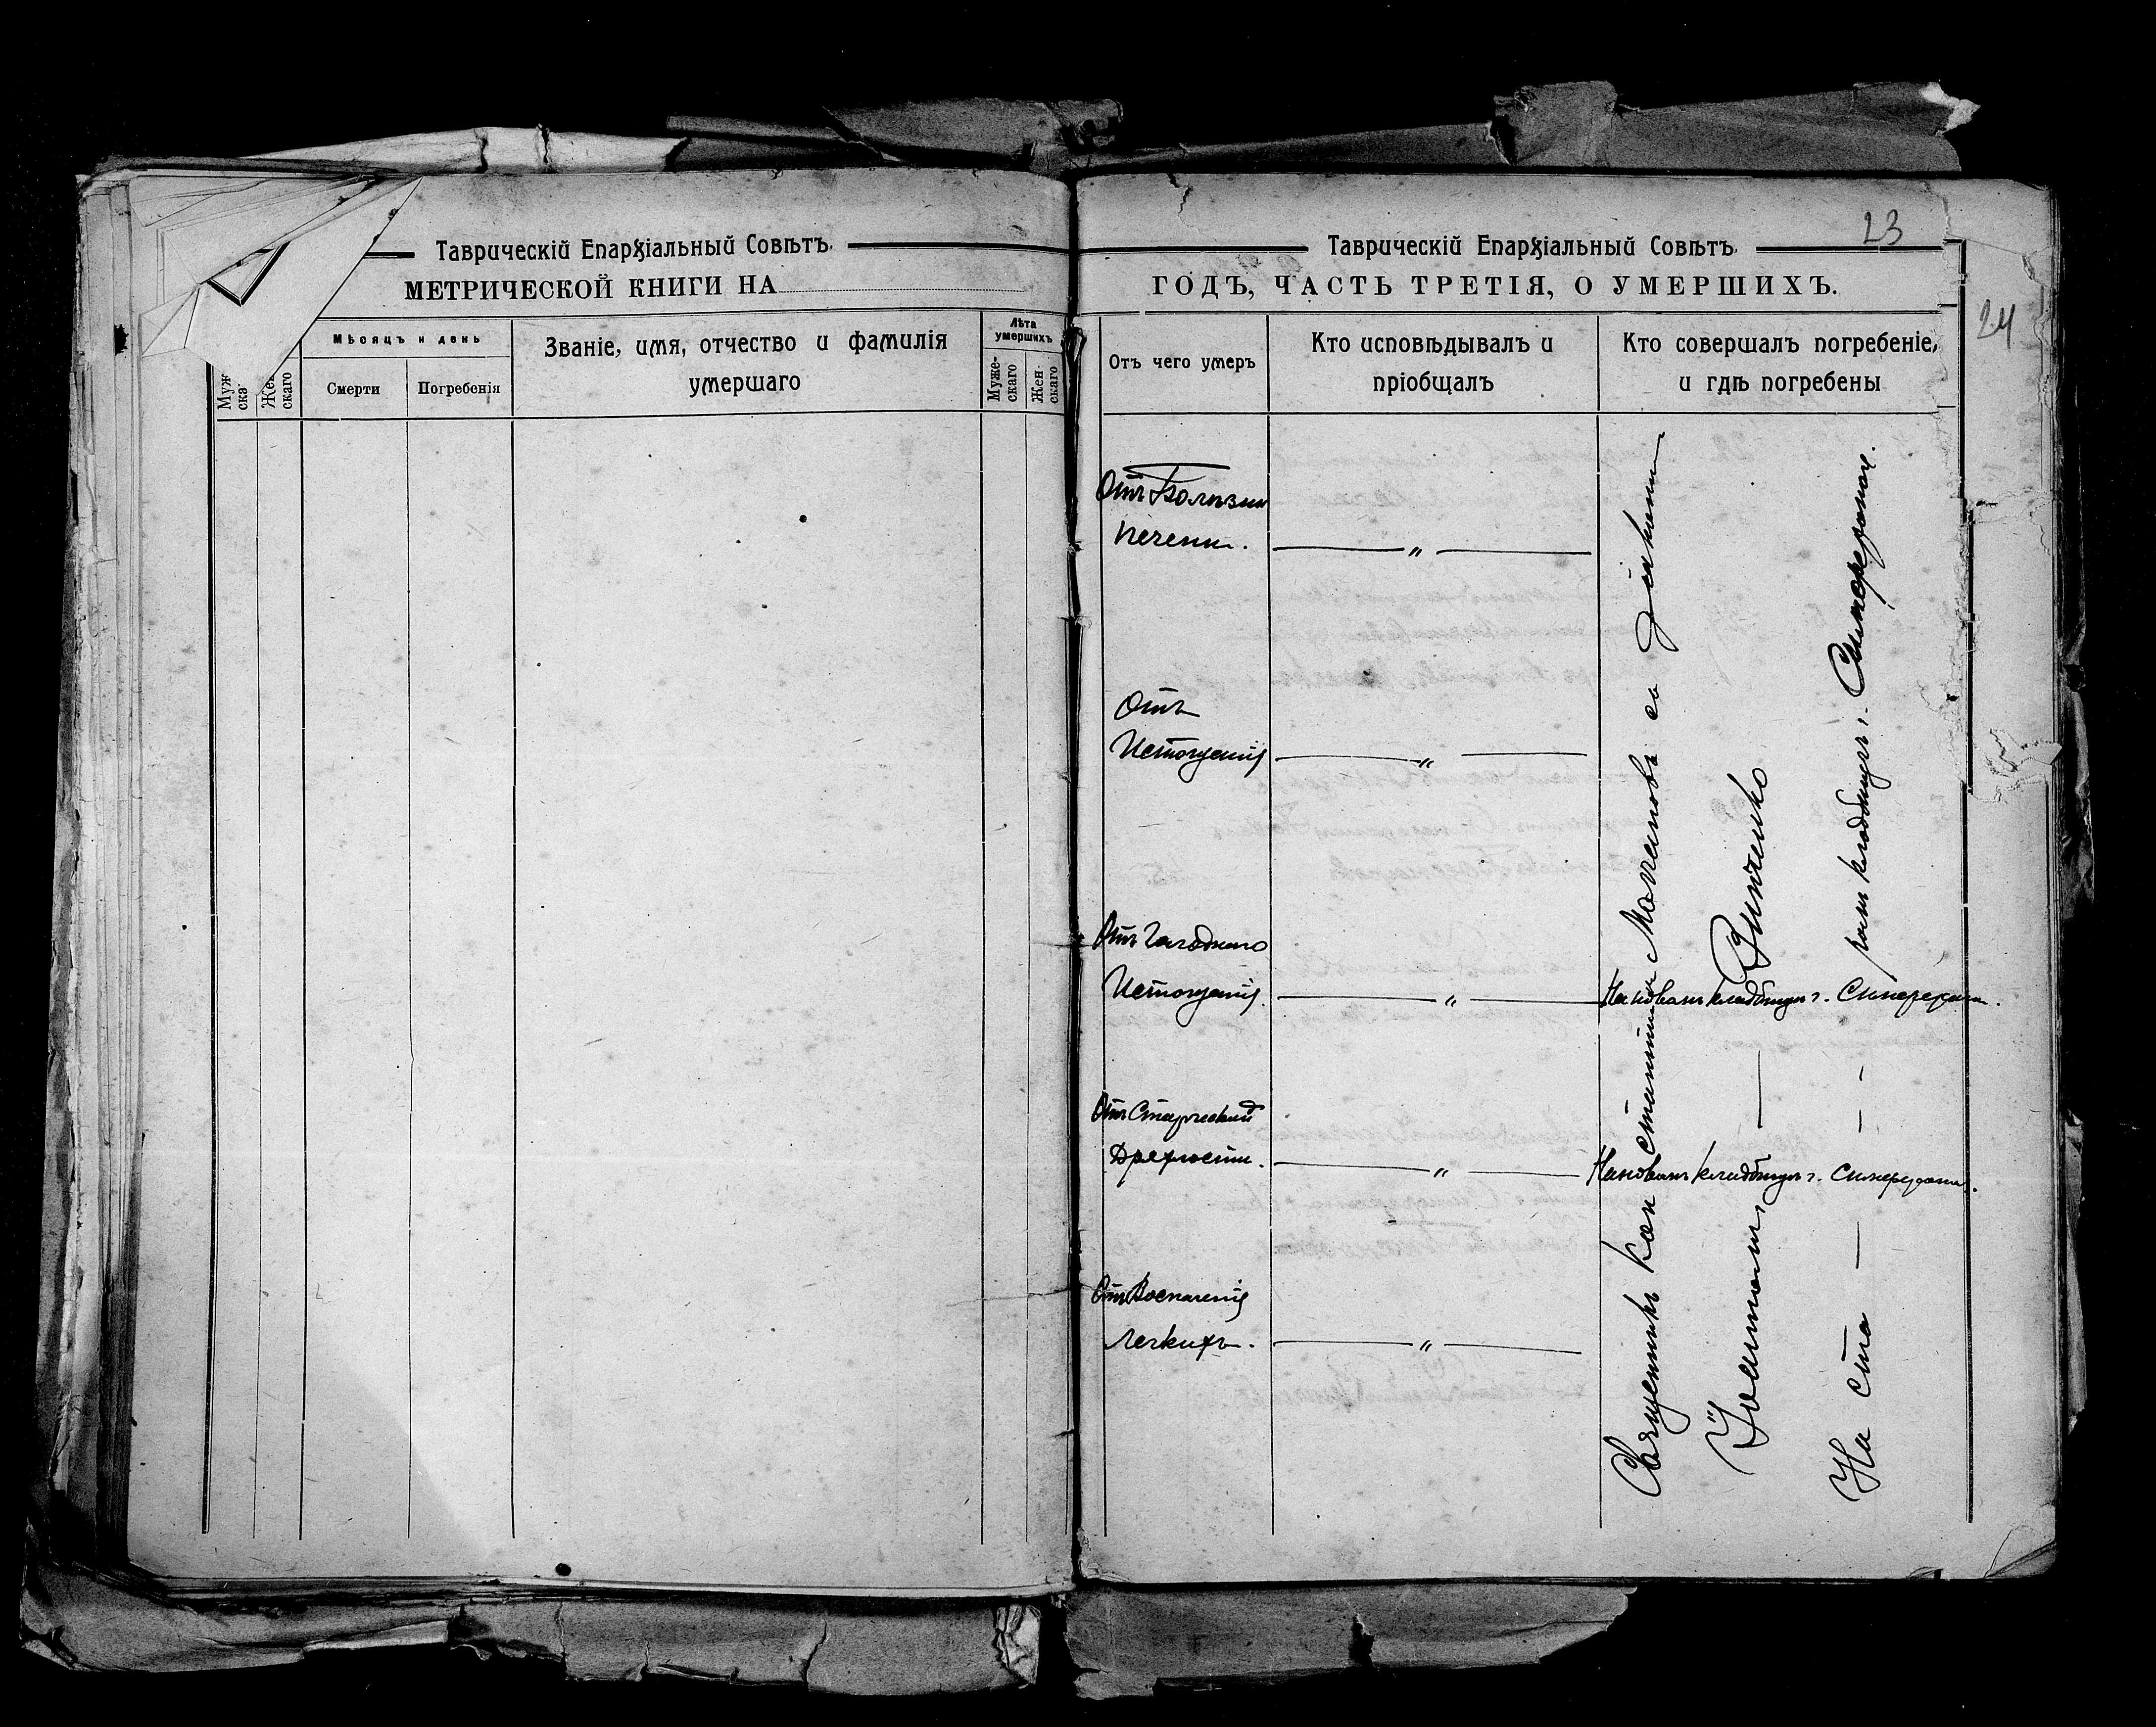 Таврическій Епархіальный Совѣтъ.
МЕТРИЧЕСКОЙ КНИГИ НА
Мѣсяцъ и день
Смерти
Погребенія
Званіе, имя, отчество и фамилія
умершаго
Лѣта
умершихъ
Муже-
скаго
Жен-
скаго
23
24
Таврическій Епархіальный Совѣтъ.
ГОДЪ, ЧАСТЬ ТРЕТІЯ, О УМЕРШИХЪ.
Отъ чего умеръ
Кто исповѣдывалъ и
пріобщалъ
Кто совершалъ погребеніе,
и гдѣ погребены
Отъ Болѣзни
печени.
Отъ
Истощенія
Отъ Голоднаго
Истощенія.
На новомъ кладбищѣ г. Симферополя.
Отъ Старческой
Дряхлости.
На новомъ кладбищѣ г. Симферополя.
Отъ Воспаленія
Легкихъ.
Священникъ Константинъ съ діакономъ
Іоанномъ Зинченко
На ста — — - ромъ кладбищѣ г. Симферополя.